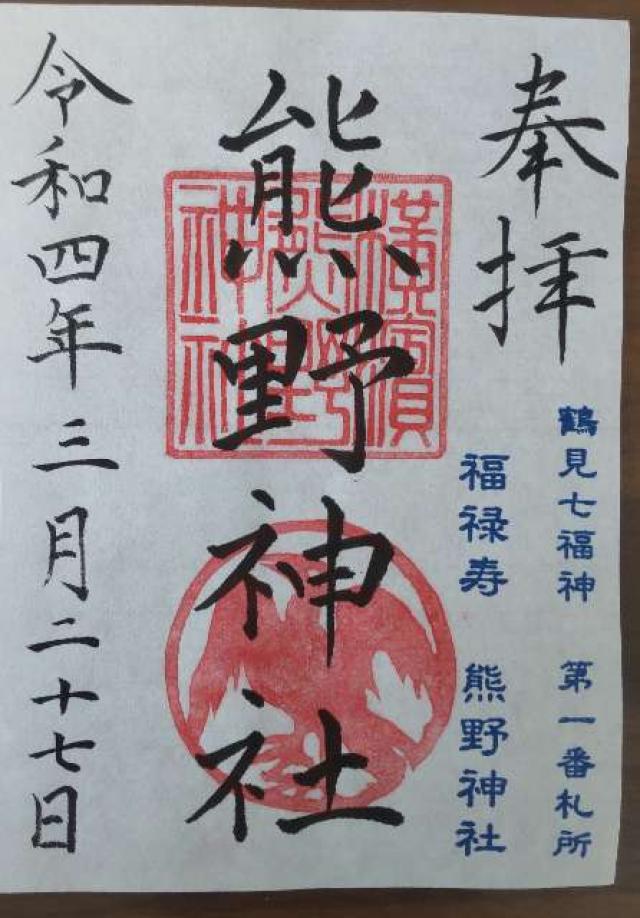 奉拝
鶴見七福神　第一番札所
福禄寿　熊野神社
熊野神社
横濱
熊野
神社
令和四年三月二十七日